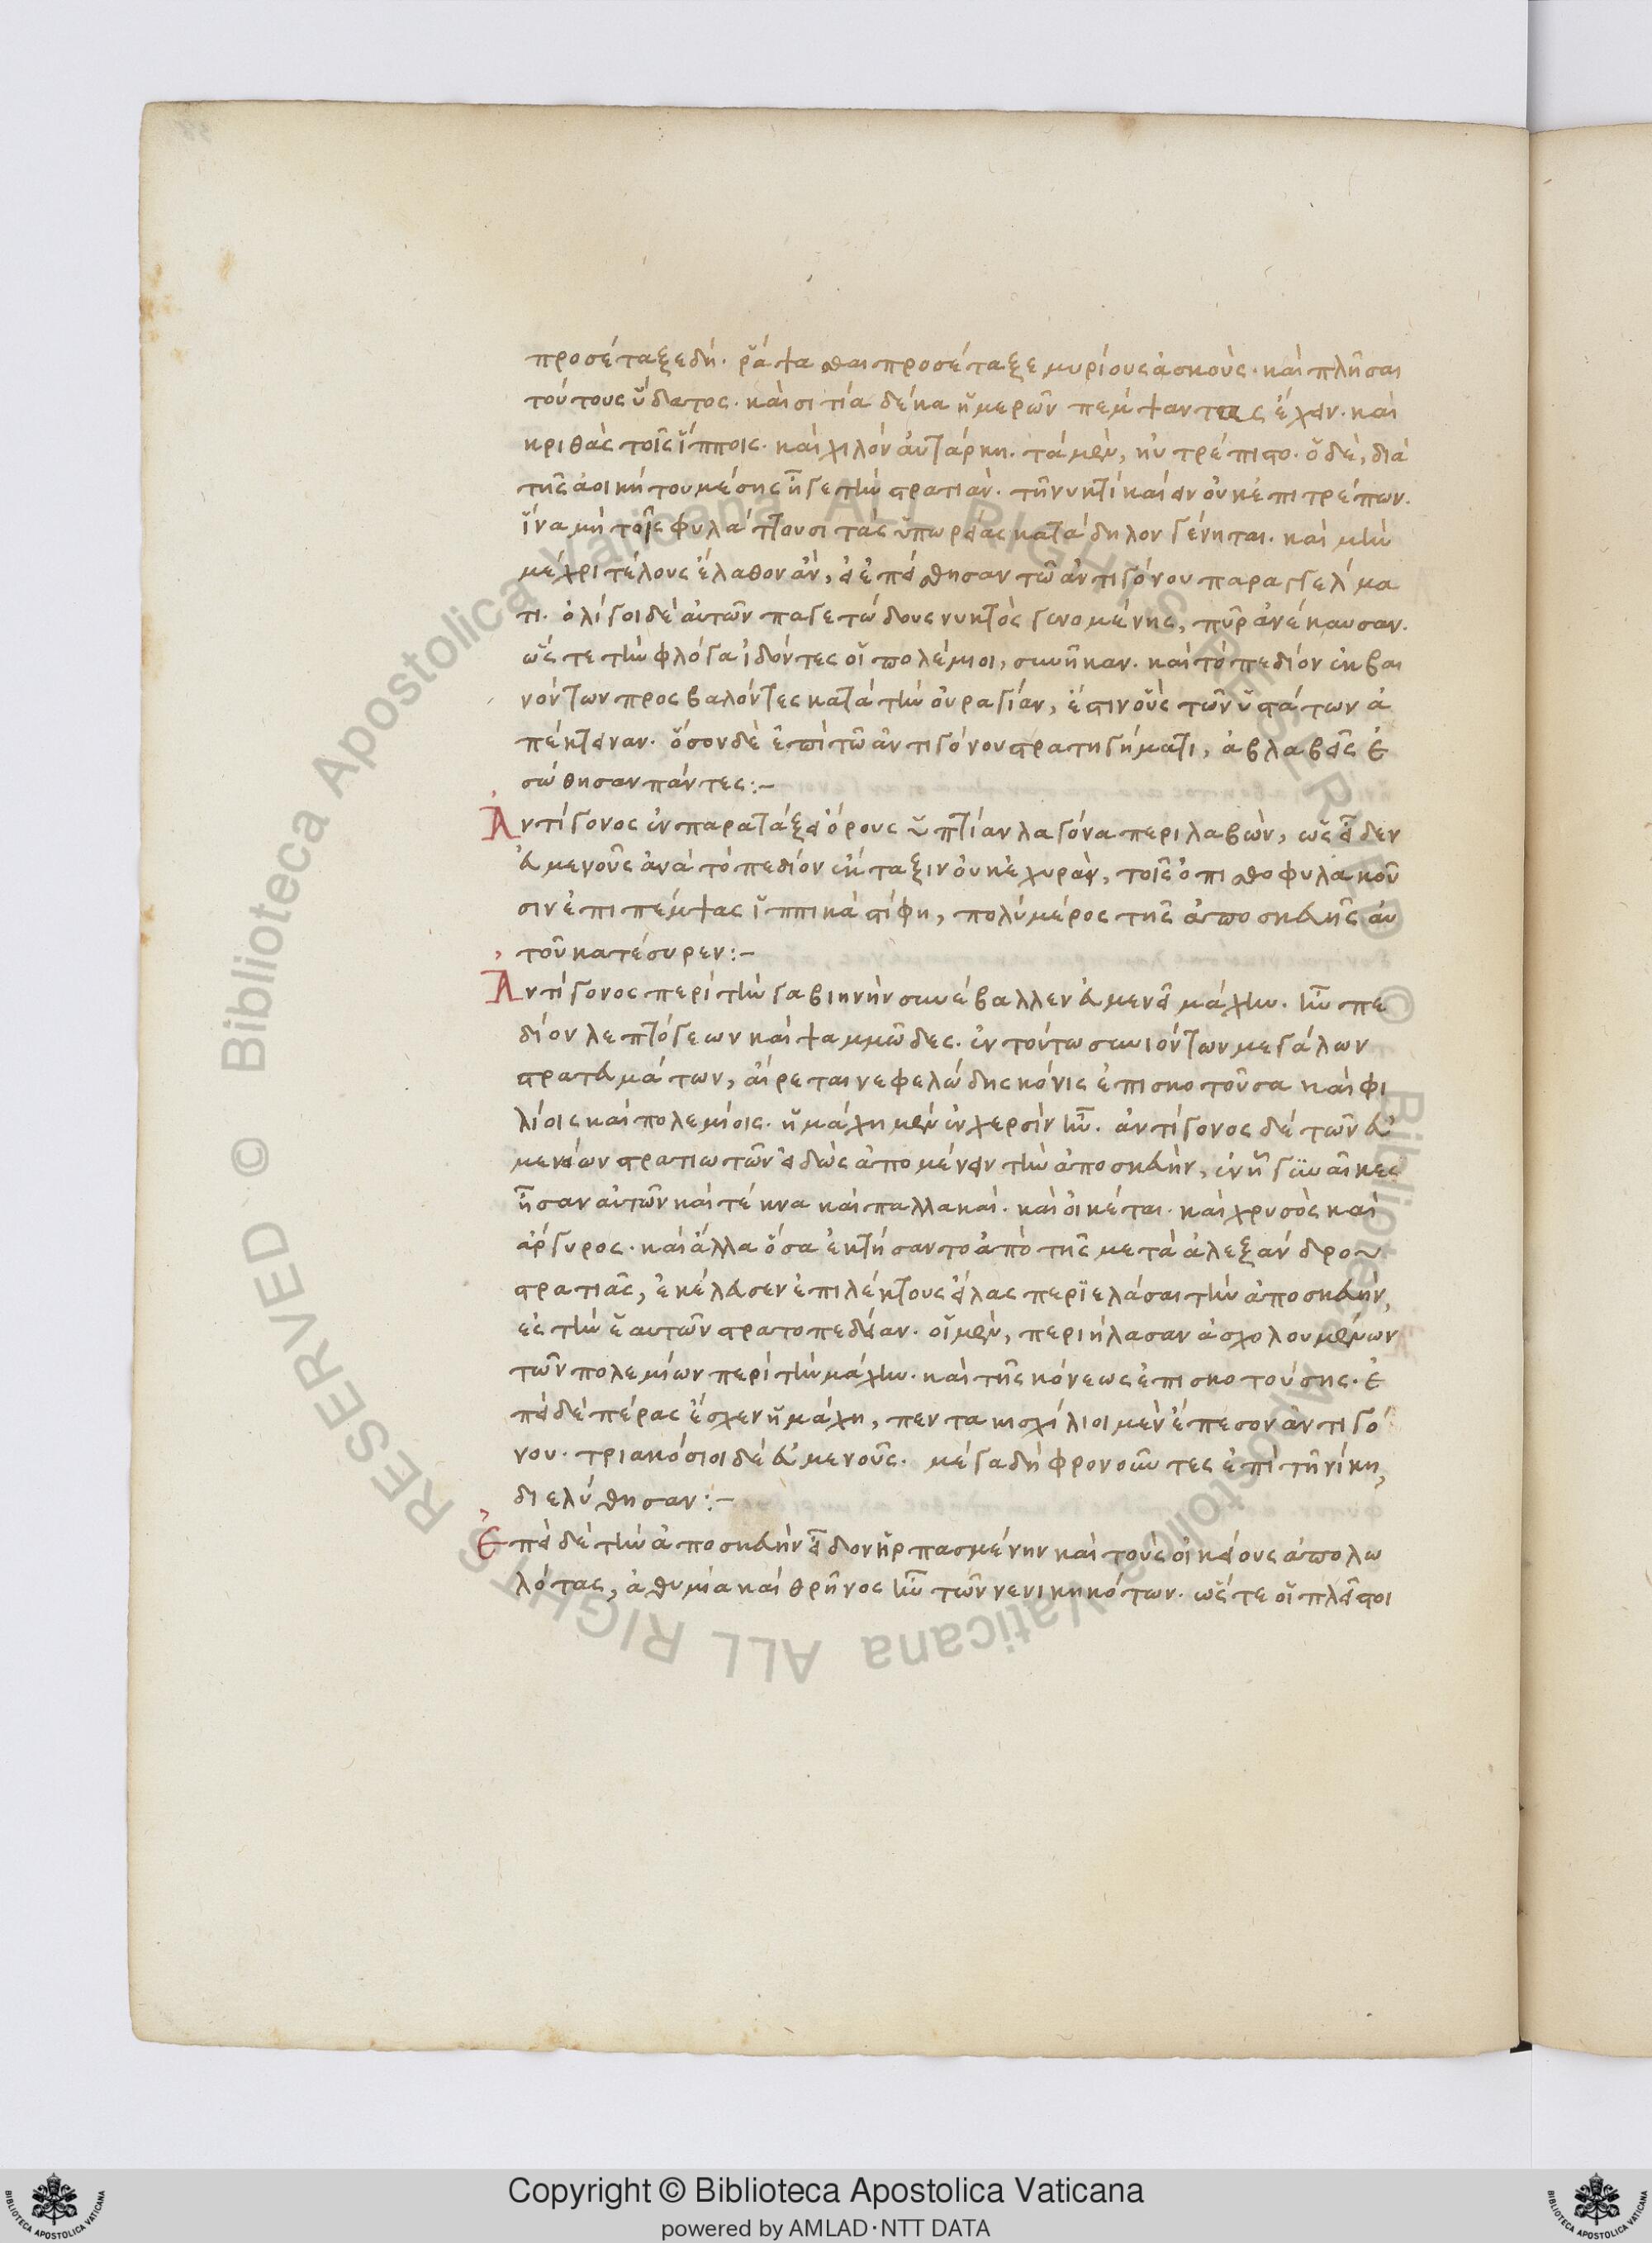 προσέταξε δή. ῥάψασθαι προσέταξε μυρίους ἀσκούς. καὶ πλῆσαι
τούτους ὕδατος. καὶ σιτία δέκα ἡμερῶν πέμψαντας ἔχειν. καὶ
κριθὰς τοῖς ἵπποις. καὶ χιλὸν αὐτάρκη. τὰ μὲν, ηὐτρέπιστο. ὁ δὲ, διὰ
τῆς ἀοικήτου μέσης ἦγε τὴν στρατιάν. τῇ νυκτὶ καίειν οὐκ ἐπιτρέπων.
ἵνα μὴ τοῖς φυλάττουσι τὰς ὑπωρείας κατάδηλον γένηται. καὶ μὴν
μέχρι τέλους ἔλαθον ἂν, εἰ ἐπείσθησαν τῷ ἀντιγόνου παραγγέλμα
τι. ὀλίγοι δὲ αὐτῶν παγετώδους νυκτὸς γενομένης, πῦρ ἀνέκαυσαν.
ὥστε τὴν φλόγα ἰδόντες οἱ πολέμιοι, συνῆκαν. καὶ τὸ πεδίον ἐκβαι
νόντων προσβαλόντες κατὰ τὴν οὐραγίαν, ἔστιν οὓς τῶν ὑστάτων ἀ
πέκτειναν. ὅσον δὲ ἐπὶ τῷ ἀντιγόνου στρατηγήματι, ἀβλαβεῖς ἐ
σώθησαν πάντες:-
Ἀντίγονος ἐν παρατάξει ὄρους ὑπτίαν λαγόνα περιλαβὼν, ὡς εἶδεν
εὐμενοῦς ἀνὰ τὸ πεδίον ἔκταξιν οὐκ ἐχυρὰν, τοῖς ὀπισθοφυλακοῦ
σιν ἐπιπέμψας ἱππικὰ στίφη, πολὺ μέρος τῆς ἀποσκευῆς αὐ
τοῦ κατέσυρεν:-
Ἀντίγονος περὶ τὴν γαβιηνὴν συνέβαλλεν εὐμενεῖ μάχην. ἦν πε
δίον λεπτόγεων καὶ ψαμμῶδες. ἐν τούτω συνιόντων μεγάλων
στρατευμάτων, αἴρεται νεφελώδης κόνις ἐπισκοτοῦσα καὶ φι
λίοις καὶ πολεμίοις. ἡ μάχη μὲν ἐν χερσὶν ἦν. ἀντίγονος δὲ τῶν εὐ
μενείων στρατιωτῶν εἰδὼς ἀπομένειν τὴν ἀποσκευὴν, ἐν ἧ γυναῖκες
ἦσαν αὐτῶν καὶ τέκνα καὶ παλλακαὶ. καὶ οἰκέται. καὶ χρυσὸς καὶ
ἄργυρος. καὶ ἄλλα ὅσα ἐκτήσαντο ἀπὸ τῆς μετὰ ἀλεξάνδρου
στρατιᾶς, ἐκέλευσεν ἐπιλέκτους εἴλας περϊελάσαι τὴν ἀποσκευὴν,
ἐς τὴν ἑαυτῶν στρατοπεδείαν. οἱ μὲν, περιήλασαν ἀσχολουμένων
τῶν πολεμίων περὶ τὴν μάχην. καὶ τῆς κόνεως ἐπισκοτούσης. ἐ
πεὶ δὲ πέρας ἔσχεν ἡ μάχη, πεντακισχίλιοι μὲν ἔπεσον ἀντιγό
νου. τριακόσιοι δὲ εὐμενοῦς. μέγα δὴ φρονοῦντες ἐπὶ τῆ νίκη,
διελύθησαν:-
Ἐπεὶ δὲ τὴν ἀποσκευὴν εἶδον ἡρπασμένην καὶ τοὺς οἰκείους ἀπολω
λότας, ἀθυμία καὶ θρῆνος ἦν τῶν νενικηκότων. ὥστε οἱ πλεῖστοι
Copyright © Biblioteca Apostolica Vaticana
powered by AMLAD·NTT DATA